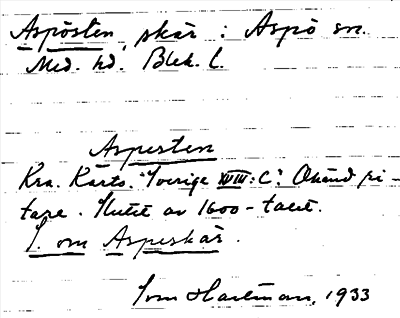 Aspösten, skär i Aspö sn.
Med. hd. Blek. l.
Aspesten
Kra. Karto. "Sverige XVIII:C". Okänd ri-
tare. Slutet av 1600-talet.
S. om Aspeskär.
Tom Hartman, 1933